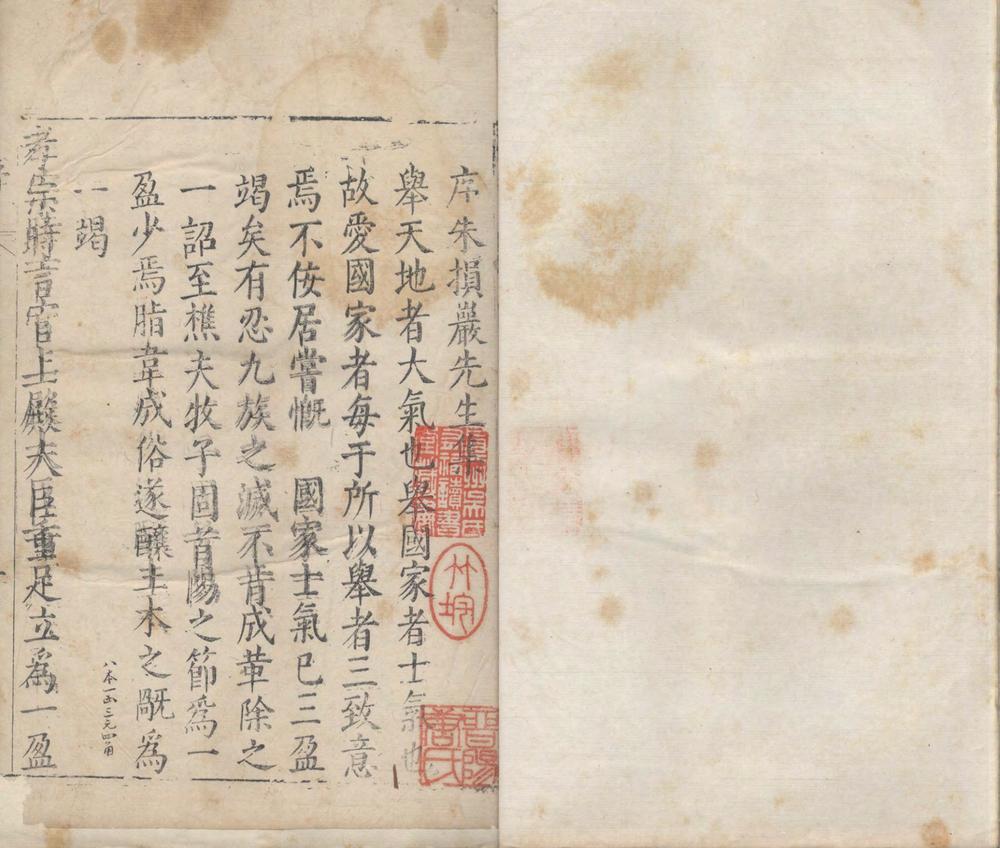 序朱損巖先生集
舉天地者大氣也舉國家者士氣也
故愛國家者每于所以舉者三致意
焉不佞居嘗慨　國家士氣已三盈
竭矣有忍九族之滅不肯成革除之
一詔至樵夫牧子固首陽之節爲一
盈少焉脂韋成俗遂釀土木之翫爲
一竭
孝宗時言官上殿大臣重足立爲一盈
八本一函三元四角
竹垞
晉陽
唐氏